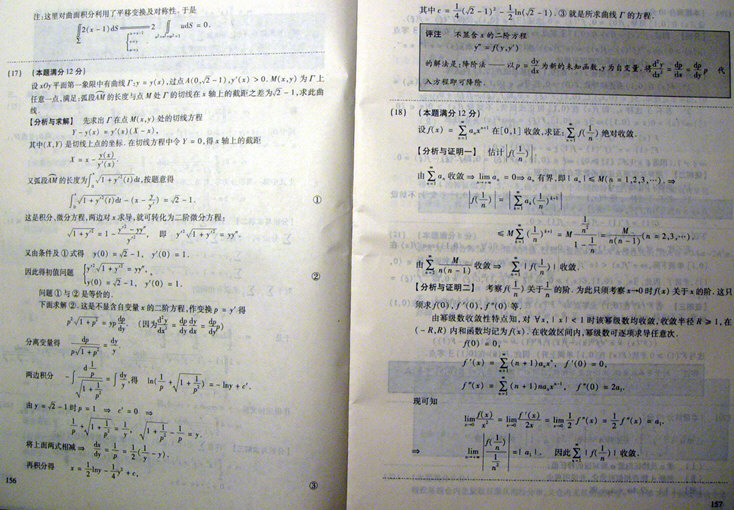 注:这里对曲面积分利用了平移变换及对称性.于是
(17) (本题满分12分)
设xOy平面第一象限中有曲线Γ:y = y(x),过点A(0,√2 - 1),y′(x) > 0. M(x,y)为Γ上
任意一点,满足:弧段AM的长度与点M处Γ的切线在x轴上的截距之差为√2 - 1,求此曲
线.
【分析与求解】 先求出Γ在点M(x,y)处的切线方程
Y - y(x) = y′(x)(X - x),
其中(X,Y)是切线上点的坐标.在切线方程中令Y = 0,得x轴上的截距
X = x - y(x)/y′(x).
又弧段AM的长度为∫₀ˣ √(1 + y′²(t))dt,按题意得
∫₀ˣ √(1 + y′²(t))dt - (x - y/y′) = √2 - 1. ①
这是积分、微分方程,两边对x求导,就可转化为二阶微分方程:
√(1 + y′²) = 1 - (y′² - yy″)/y′², 即 y′²√(1 + y′²) = yy″.
又由条件及①式得 y(0) = √2 - 1, y′(0) = 1.
因此得初值问题 { y′²√(1 + y′²) = yy″, y(0) = √2 - 1, y′(0) = 1. ②
问题①与②是等价的.
下面求解②.这是不显含自变量x的二阶方程,作变换p = y′得
p²√(1 + p²) = yp dp/dy. (因为d²y/dx² = dp/dy dy/dx = dp/dy p)
分离变量得 dp/(p√(1 + p²)) = dy/y.
两边积分 -∫ d(1/p)/√(1 + 1/p²) = ∫ dy/y, 得 ln(1/p + √(1 + 1/p²)) = -lny + c′.
由y = √2 - 1时p = 1 ⇒ c′ = 0 ⇒
1/p + √(1 + 1/p²) = 1/y, √(1 + 1/p²) - 1/p = y.
将上面两式相减⇒ dx/dy = 1/p = 1/2(1/y - y).
再积分得 x = 1/2 lny - 1/4 y² + c, ③
156
其中c = 1/4(√2 - 1)² - 1/2 ln(√2 - 1). ③就是所求曲线Γ的方程.
评注 不显含x的二阶方程
y″ = f(y,y′)
的解法是:降阶法——以p = dy/dx为新的未知函数,y为自变量.将d²y/dx² = dp/dx = dp/dy p 代
入方程即可降阶.
(18) (本题满分12分)
设f(x) = Σ aₙxⁿ⁺¹在[0,1]收敛,求证:Σ f(1/n)绝对收敛.
【分析与证明一】 估计|f(1/n)|.
由Σ aₙ收敛⇒ lim aₙ = 0 ⇒ aₙ有界,即|aₙ| ≤ M(n = 1,2,3,…), ⇒
|f(1/n)| = |Σ aₖ(1/n)ᵏ⁺¹|
≤ M Σ (1/n)ᵏ⁺¹ = M (1/n²)/(1 - 1/n) = M/(n(n - 1)) (n = 2,3,…).
由Σ M/(n(n - 1))收敛⇒ Σ |f(1/n)|收敛.
【分析与证明二】 考察f(1/n)关于1/n的阶.为此只须考察x→0时f(x)关于x的阶.这只
须求f(0),f′(0),f″(0)等.
由幂级数收敛性特点知,对∀x,|x| < 1时该幂级数均收敛,收敛半径R ≥ 1,在
(-R,R)内和函数均记为f(x).在收敛区间内,幂级数可逐项求导任意次.
f(0) = 0,
f′(x) = Σ (n + 1)aₙxⁿ, f′(0) = 0,
f″(x) = Σ (n + 1)naₙxⁿ⁻¹, f″(0) = 2a₁.
现可知
lim f(x)/x² = lim f′(x)/2x = lim 1/2 f″(x) = 1/2 f″(0) = a₁.
⇒ lim |f(1/n)/(1/n²)| = |a₁|. 因此Σ |f(1/n)|收敛.
157